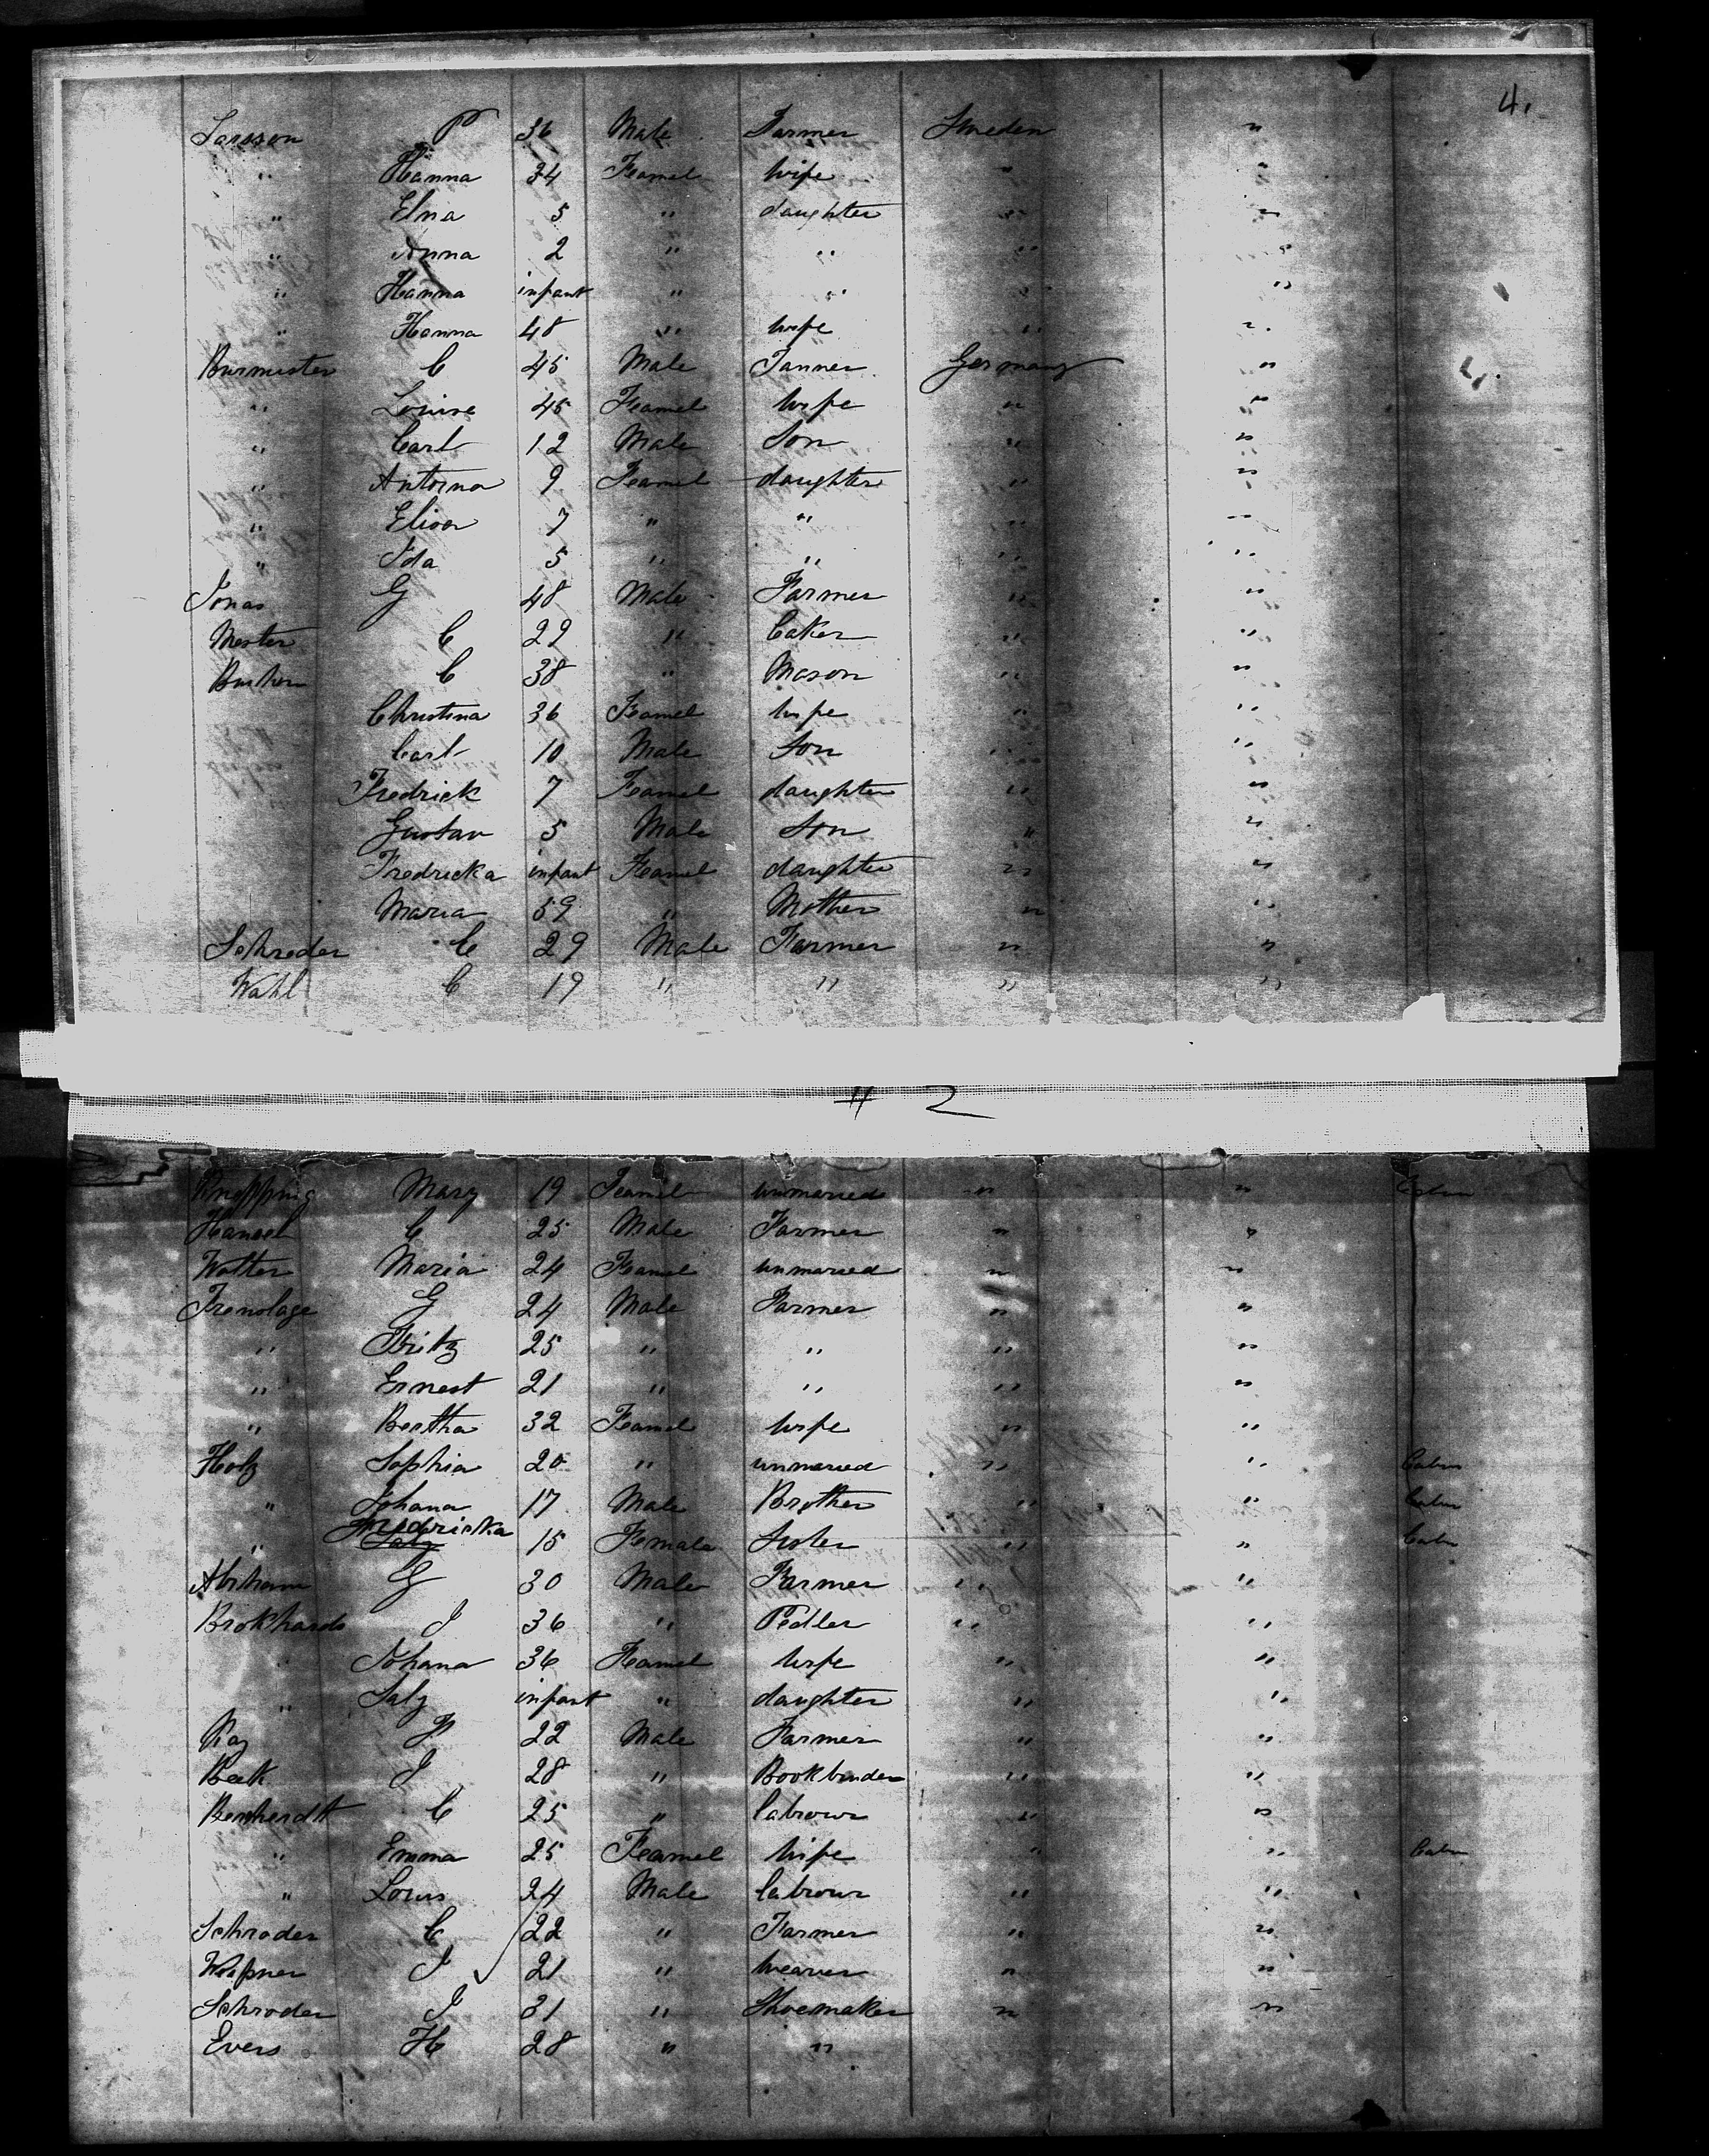 4.
Larsson P 36 Male Farmer Sweden "
" Hanna 34 Feamel wife " "
" Elna 5 " daughter " "
" Anna 2 " " " "
" Hanna infant " " " "
" Hanna 48 " wife " "
Burmister C 45 Male Tanner Germany "
" Louise 45 Feamel wife " "
" Carl 12 Male Son " "
" Antorna 9 Feamel daughter " "
" 7 " " " "
" Ida 5 " " " "
Jonas G 48 Male Farmer " "
Mester C 22 " Baker " "
C 38 " Mason " "
Christina 36 Feamel wife " "
Carl 10 Male Son " "
Fredrick 7 Feamel daughter " "
Gustav 5 Male Son " "
Fredricka infant Feamel daughter " "
Maria 59 " Mother " "
Schreder C 29 Male Farmer " "
Wahl C 19 " " " "
# 2
Mary 19 Feamel unmaried " "
Hansel C 25 Male Farmer " "
Wolter Maria 24 Feamel unmaried " "
G 24 Male Farmer " "
" Fritz 25 " " " "
" Ernest 21 " " " "
" Bertha 32 Feamel wife " "
Holz Sophia 20 " unmaried " " Cabin
" Johana 17 Male Brother " " Cabin
Fredericka
" Saly 15 Female Sister " " Cabin
Abraham G 30 Male Farmer " "
J 36 " Pedler " "
" Johana 36 Feamel wife " "
" Saly infant " daughter " "
22 Male Farmer " "
Beck J 28 " Bookbinder " "
Bernherdt C 25 " labrour " "
" Emma 25 Feamel wife " " Cabin
" Louis 24 Male labrour " "
Schroder C 22 " Farmer " "
J 21 " weaver " "
Schroder J 31 " Shoemaker " "
Evers H 28 " "